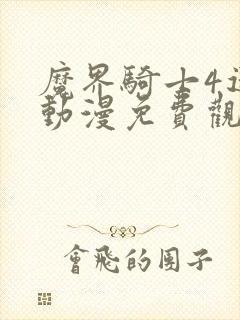 魔界騎士4
動漫免費觀
會飛的團子